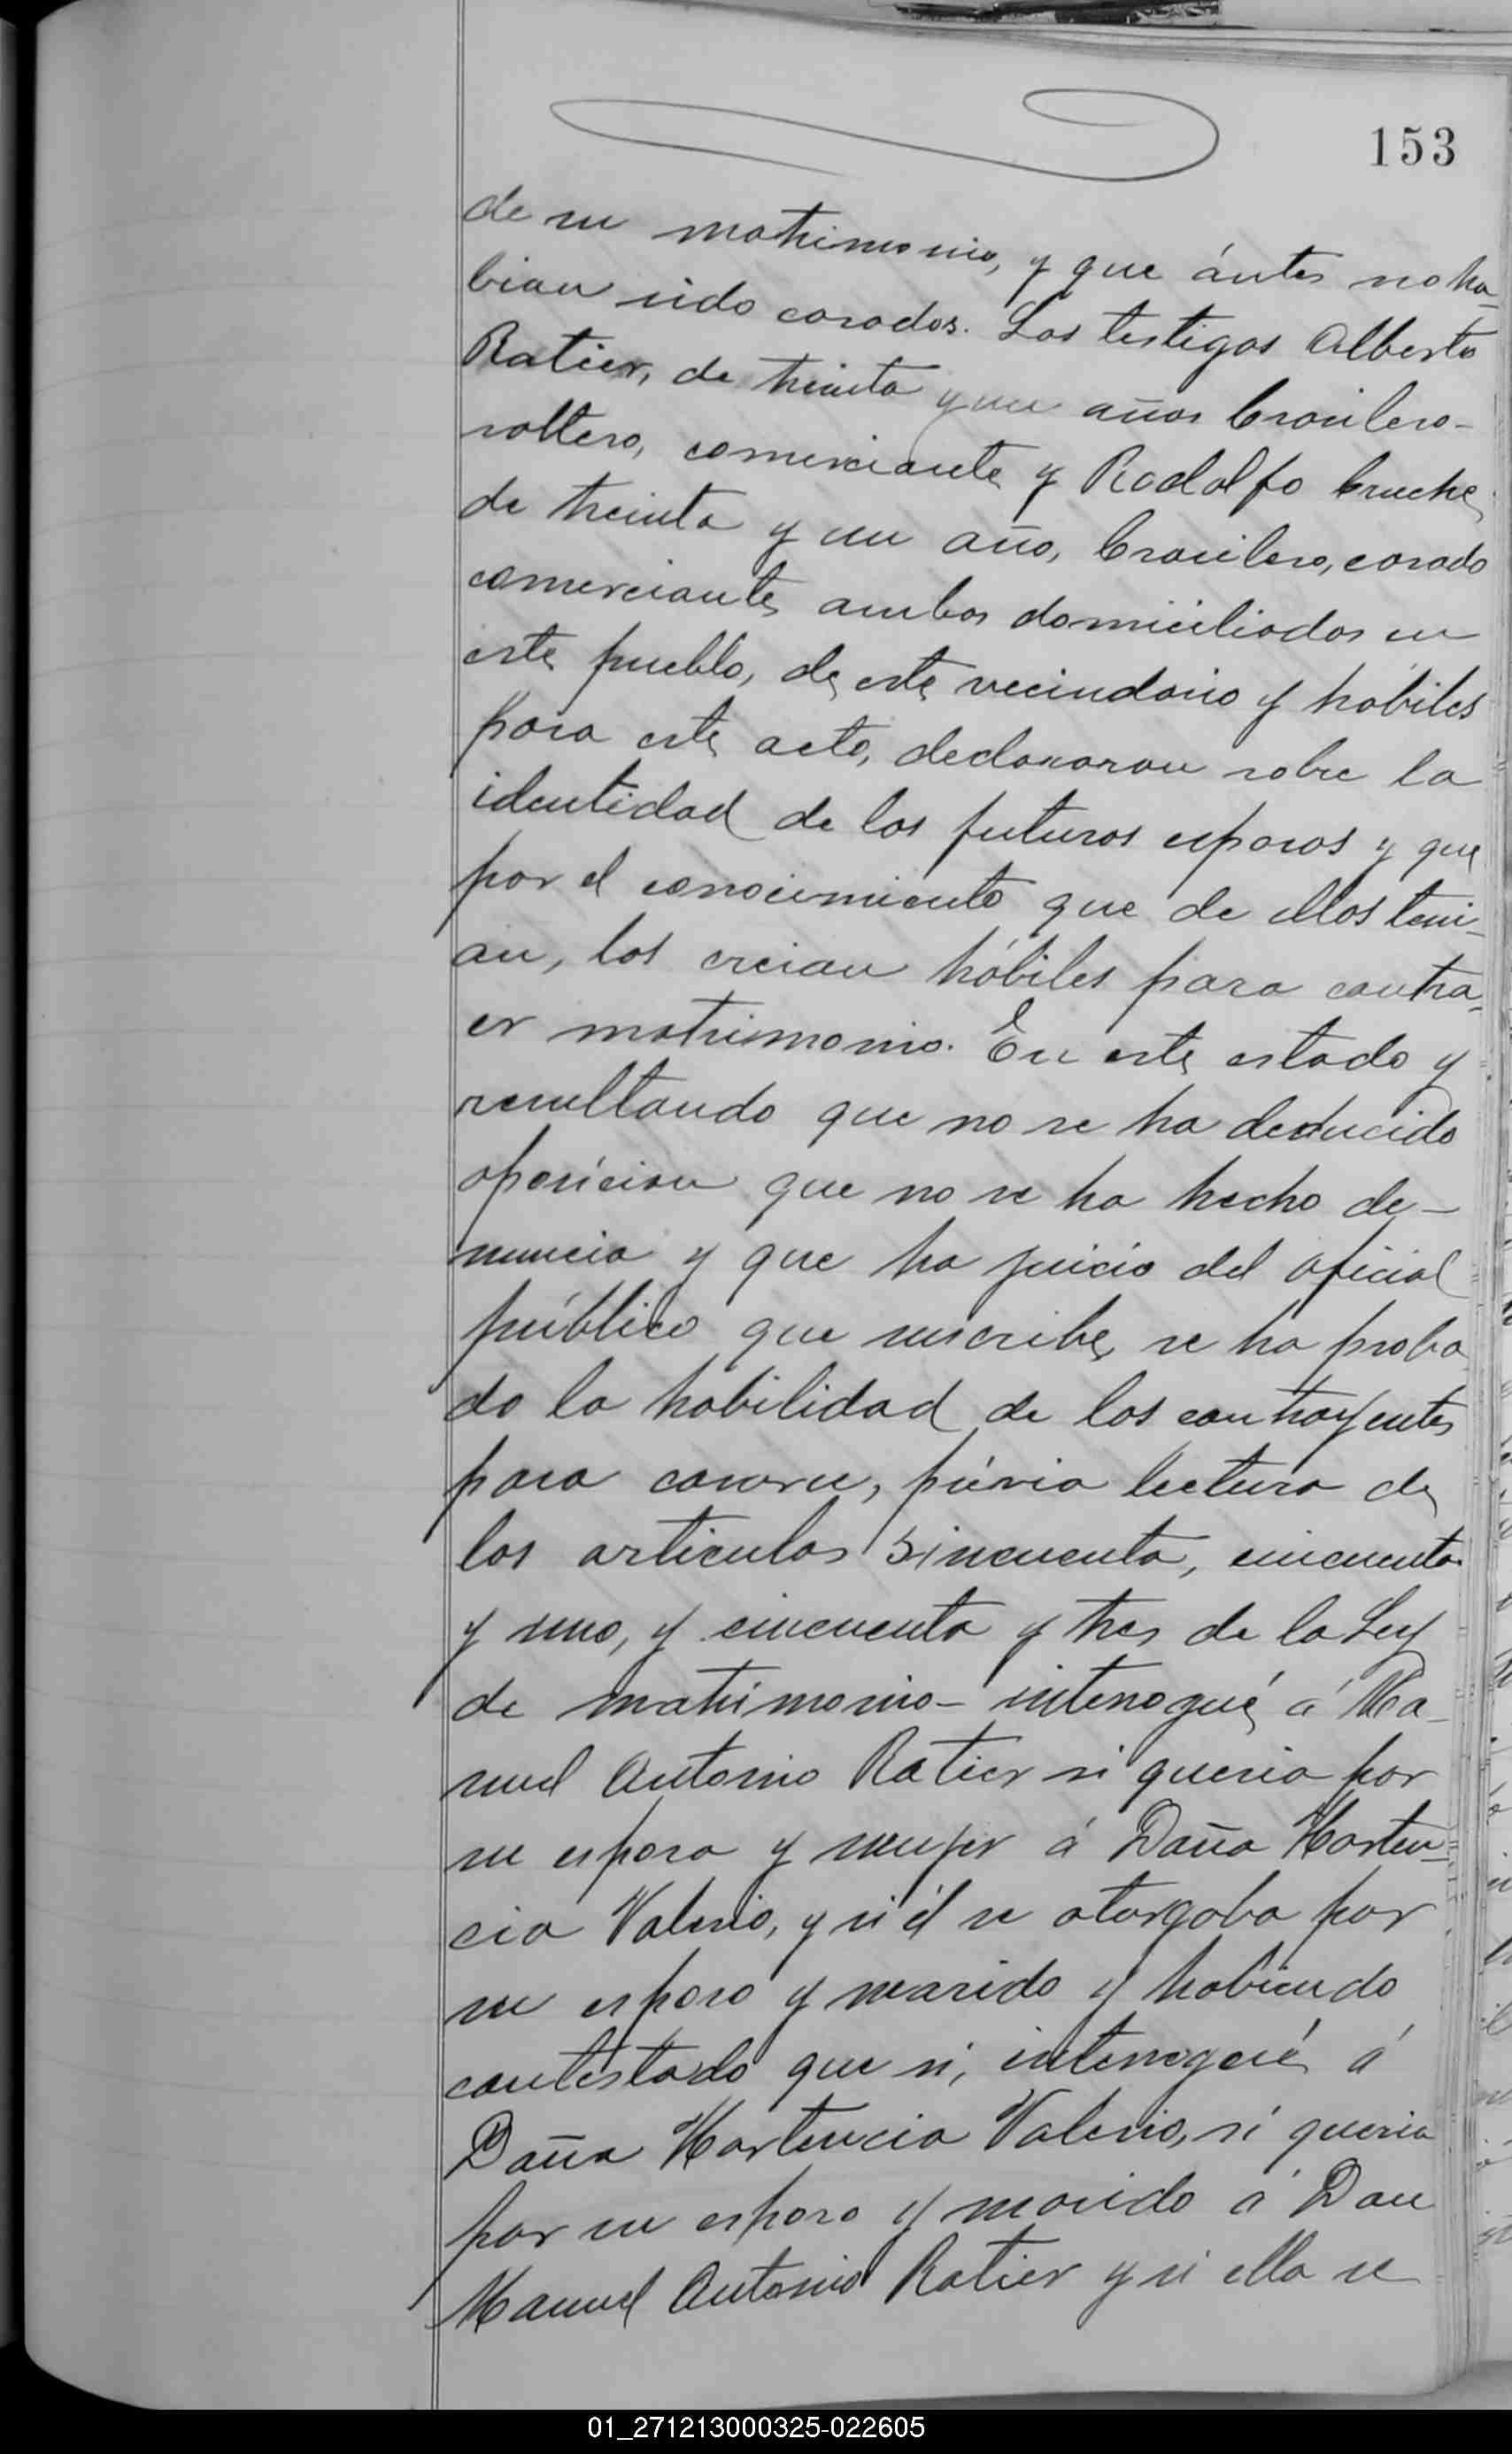 153
de su matrimonio, y que ántes no ha-
bian sido casados. Los testigos Alberto
Ratier, de treinta y un años brasilero-
soltero, comerciante y Rodolfo
de treinta y un año, brasilero, casado
comerciante, ambos domiciliados en
este pueblo, de este vecindario y hábiles
para este acto, declararon sobre la
identidad de los futuros esposos y que
por el conocimiento que de ellos teni-
an, los creian hábiles para contra-
er matrimonio. En este estado y
resultando que no se ha deducido
oposicion que no se ha hecho de-
nuncia y que ha juicio del oficial
público que suscribe, se ha proba
do la habilidad de los contrayentes
para casarse, prévia lectura de
los articulos sincuenta, cincuenta
y uno, y cincuenta y tres de la Ley
de matrimonio- interrogué á Ma-
nuel Antonio Ratier si queria por
su esposa y mujer á Doña Horten-
cia Valerio, y si él se otorgaba por
su esposo y marido y habiendo
contestado que si, interrogué á
Doña Hortencia Valerio, si queria
por su esposo y marido á Don
Manuel Antonio Ratier y si ella se
01_271213000325-022605